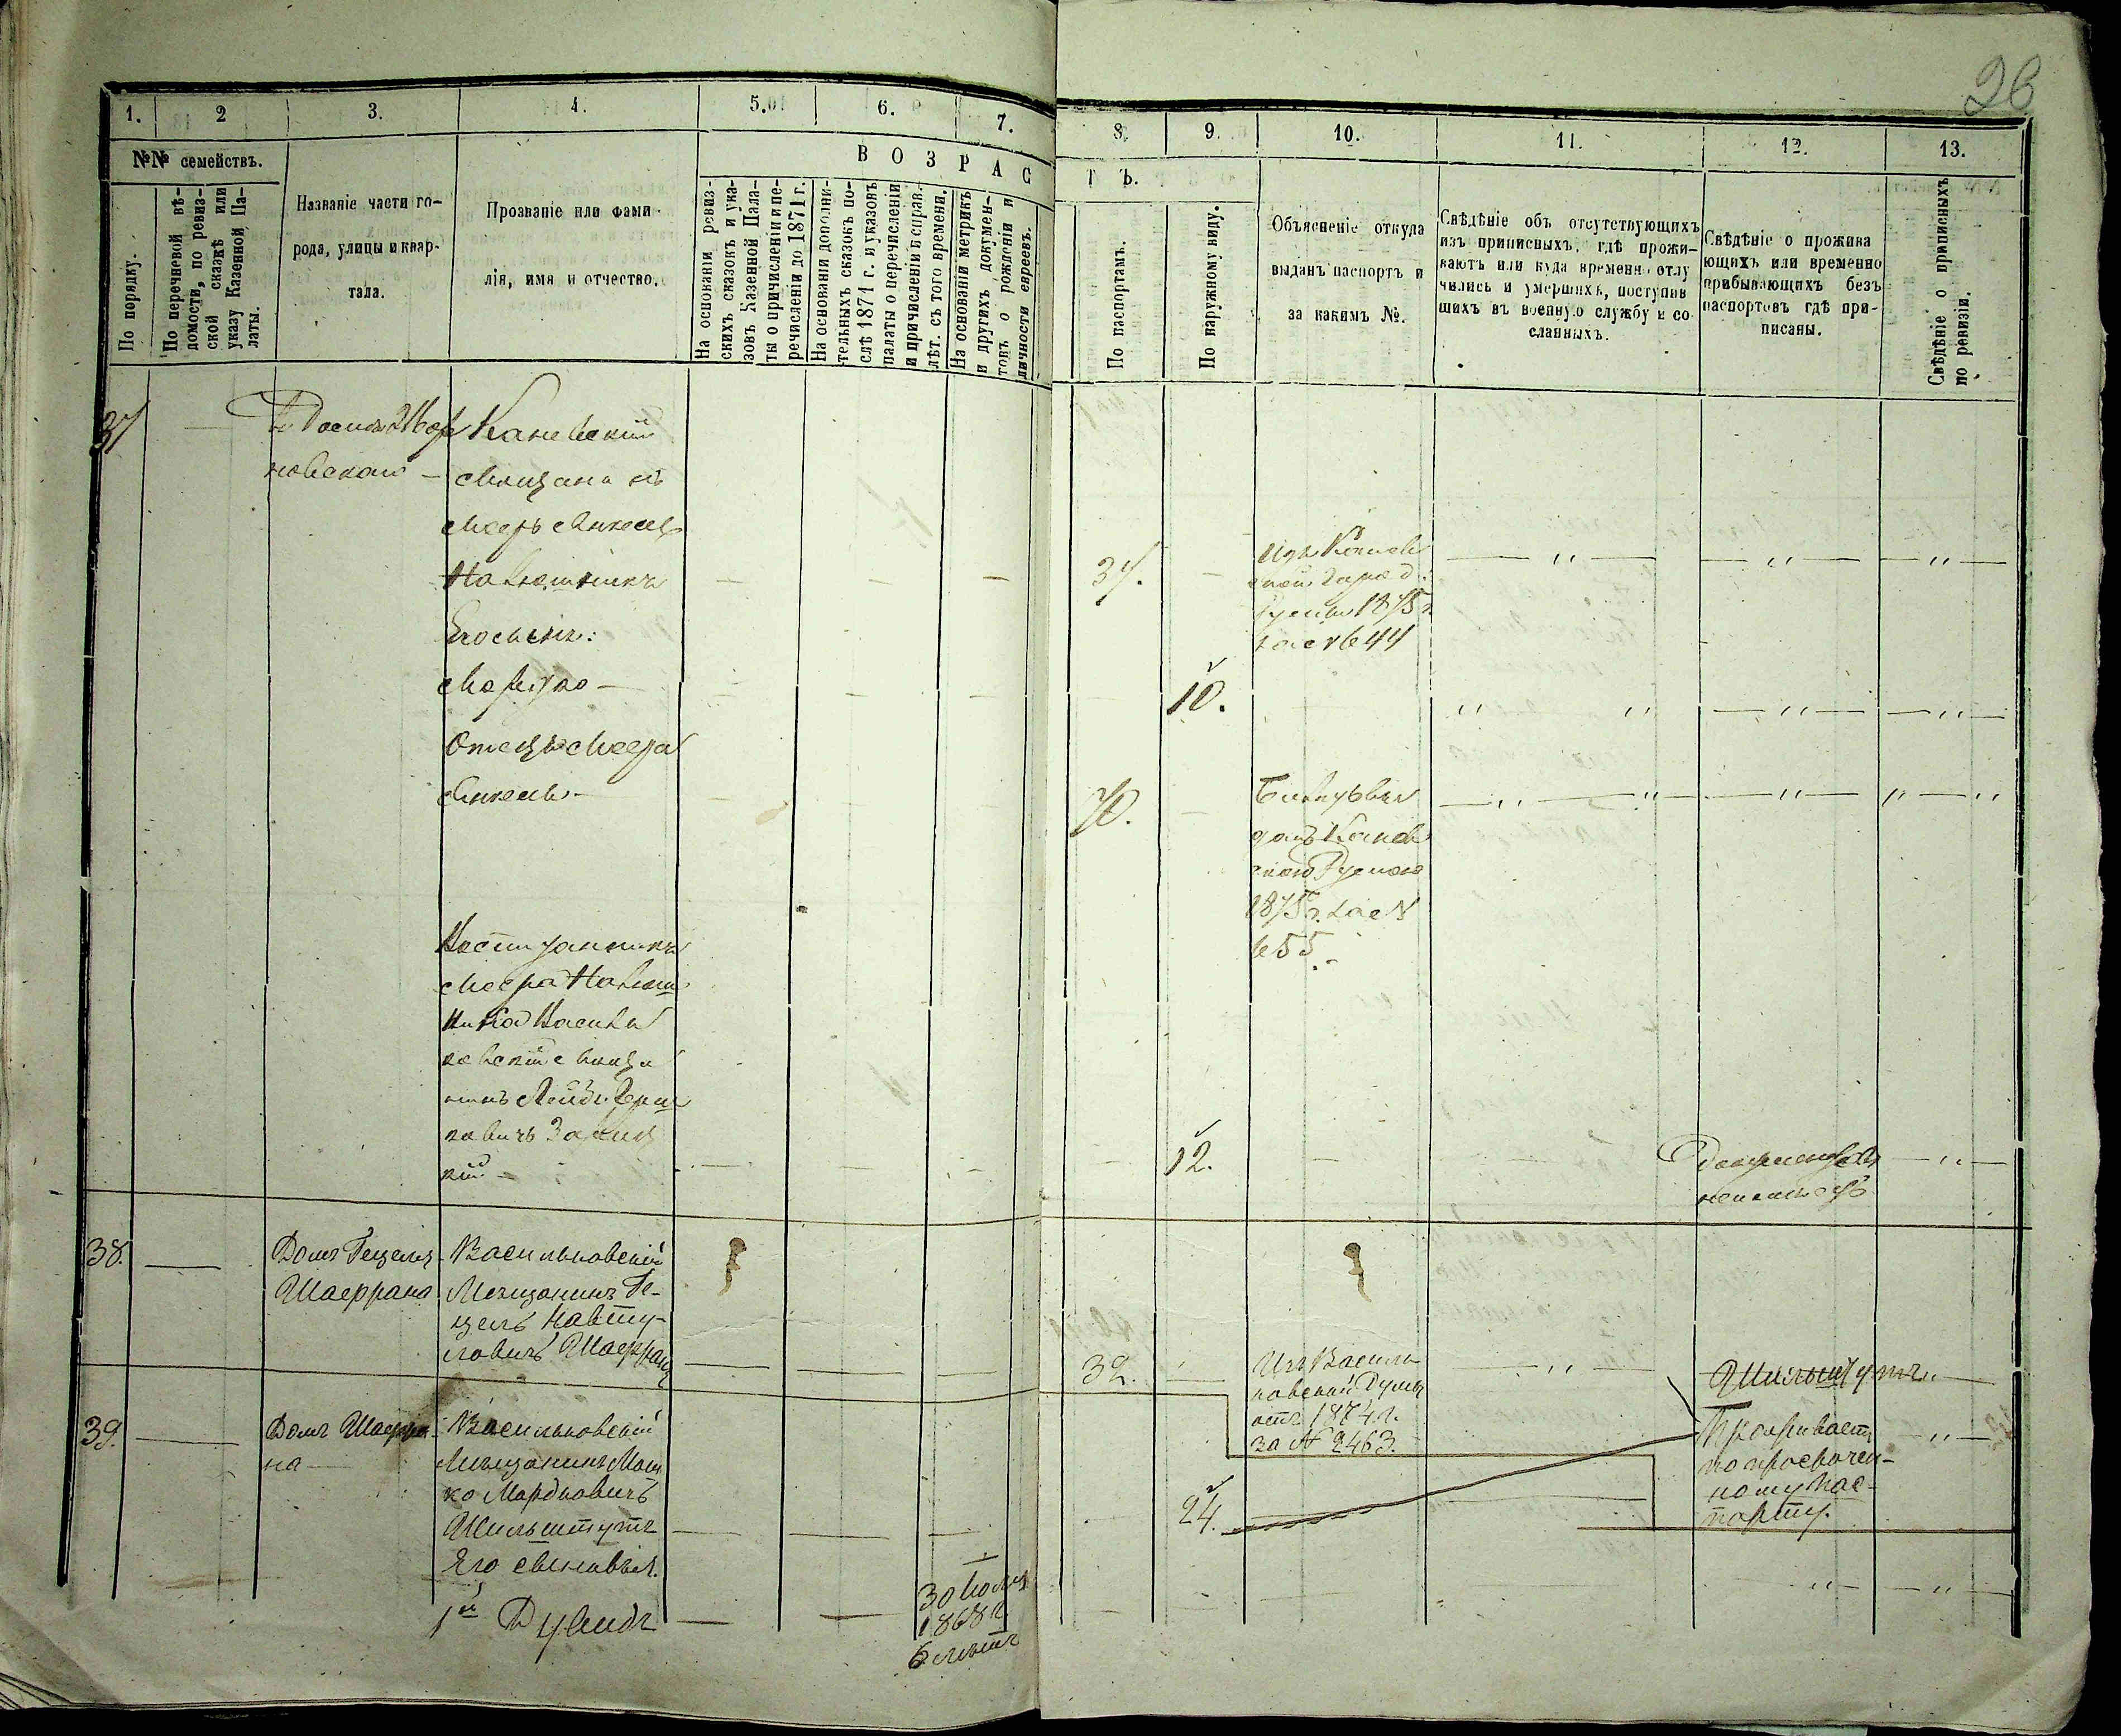 26
1.
2
3.
4.
5.
6.
7.
8.
9.
10.
11.
12.
13.
№№ семействъ.
По порядку.
По перечневой вѣ-
домости, по ревиз-
ской сказкѣ или
указу Казенной Па-
латы.
Названіе части го-
рода, улицы и квар-
тала.
Прозваніе или фами-
лія, имя и отчество.
ВОЗРАС
ТЪ.
На основаніи ревиз-
скихъ сказокъ и ука-
зовъ Казенной Пала-
ты о причисленіи и пе-
речисленіи до 1871 г.
На основаніи дополни-
тельныхъ сказокъ по-
слѣ 1871 г. и указовъ
палаты о перечисленіи
и причисленіи и справ.
лѣт. съ того времени.
На основаніи метрикъ
и другихъ докумен-
товъ о рожденіи и
личности евреевъ.
По паспортамъ.
По наружному виду.
Объясненіе откуда
выданъ паспортъ и
за какимъ №.
Свѣдѣніе объ отсутствующихъ
изъ приписныхъ, гдѣ прожи-
ваютъ или куда временно отлу
чились и умершихъ, поступив
шихъ въ военную службу и со
сланныхъ.
Свѣдѣніе о прожива
ющихъ или временно
прибывающихъ безъ
паспортовъ гдѣ при-
писаны.
Свѣдѣніе о приписныхъ
по ревизіи.
37
Каневскій
мещанинъ
Мееръ Янкел
Его сынъ:
37.
Изъ Канев
ской Город:
Думы 1875 г.
за № 644
10.
Отецъ Меера
Янкель
70.
Билетъ вы
данъ Канев
скою Думою
1875 г. за №
655.
Воспитанникъ
Меера
Васильковскій мѣща
нинъ
12.
Документовъ
неимѣетъ
38.
Домъ Гецеля
Шаеррана
Васильковскій
Мещанинъ Ге-
цель Навту-
ловичъ
32.
Изъ Василь-
ковской Думы
отъ 1874 г.
за № 2463.
Шильштутъ
39.
Домъ Шаерра-
на
Васильковскій
Мещанинъ Мош
ко Мордковичъ
Шильштутъ
24.
Проживаетъ
по просрочен-
ному пас-
порту.
Его сыновья.
1й Дувидъ
30 Іюля
1868 г.
6 лѣтъ